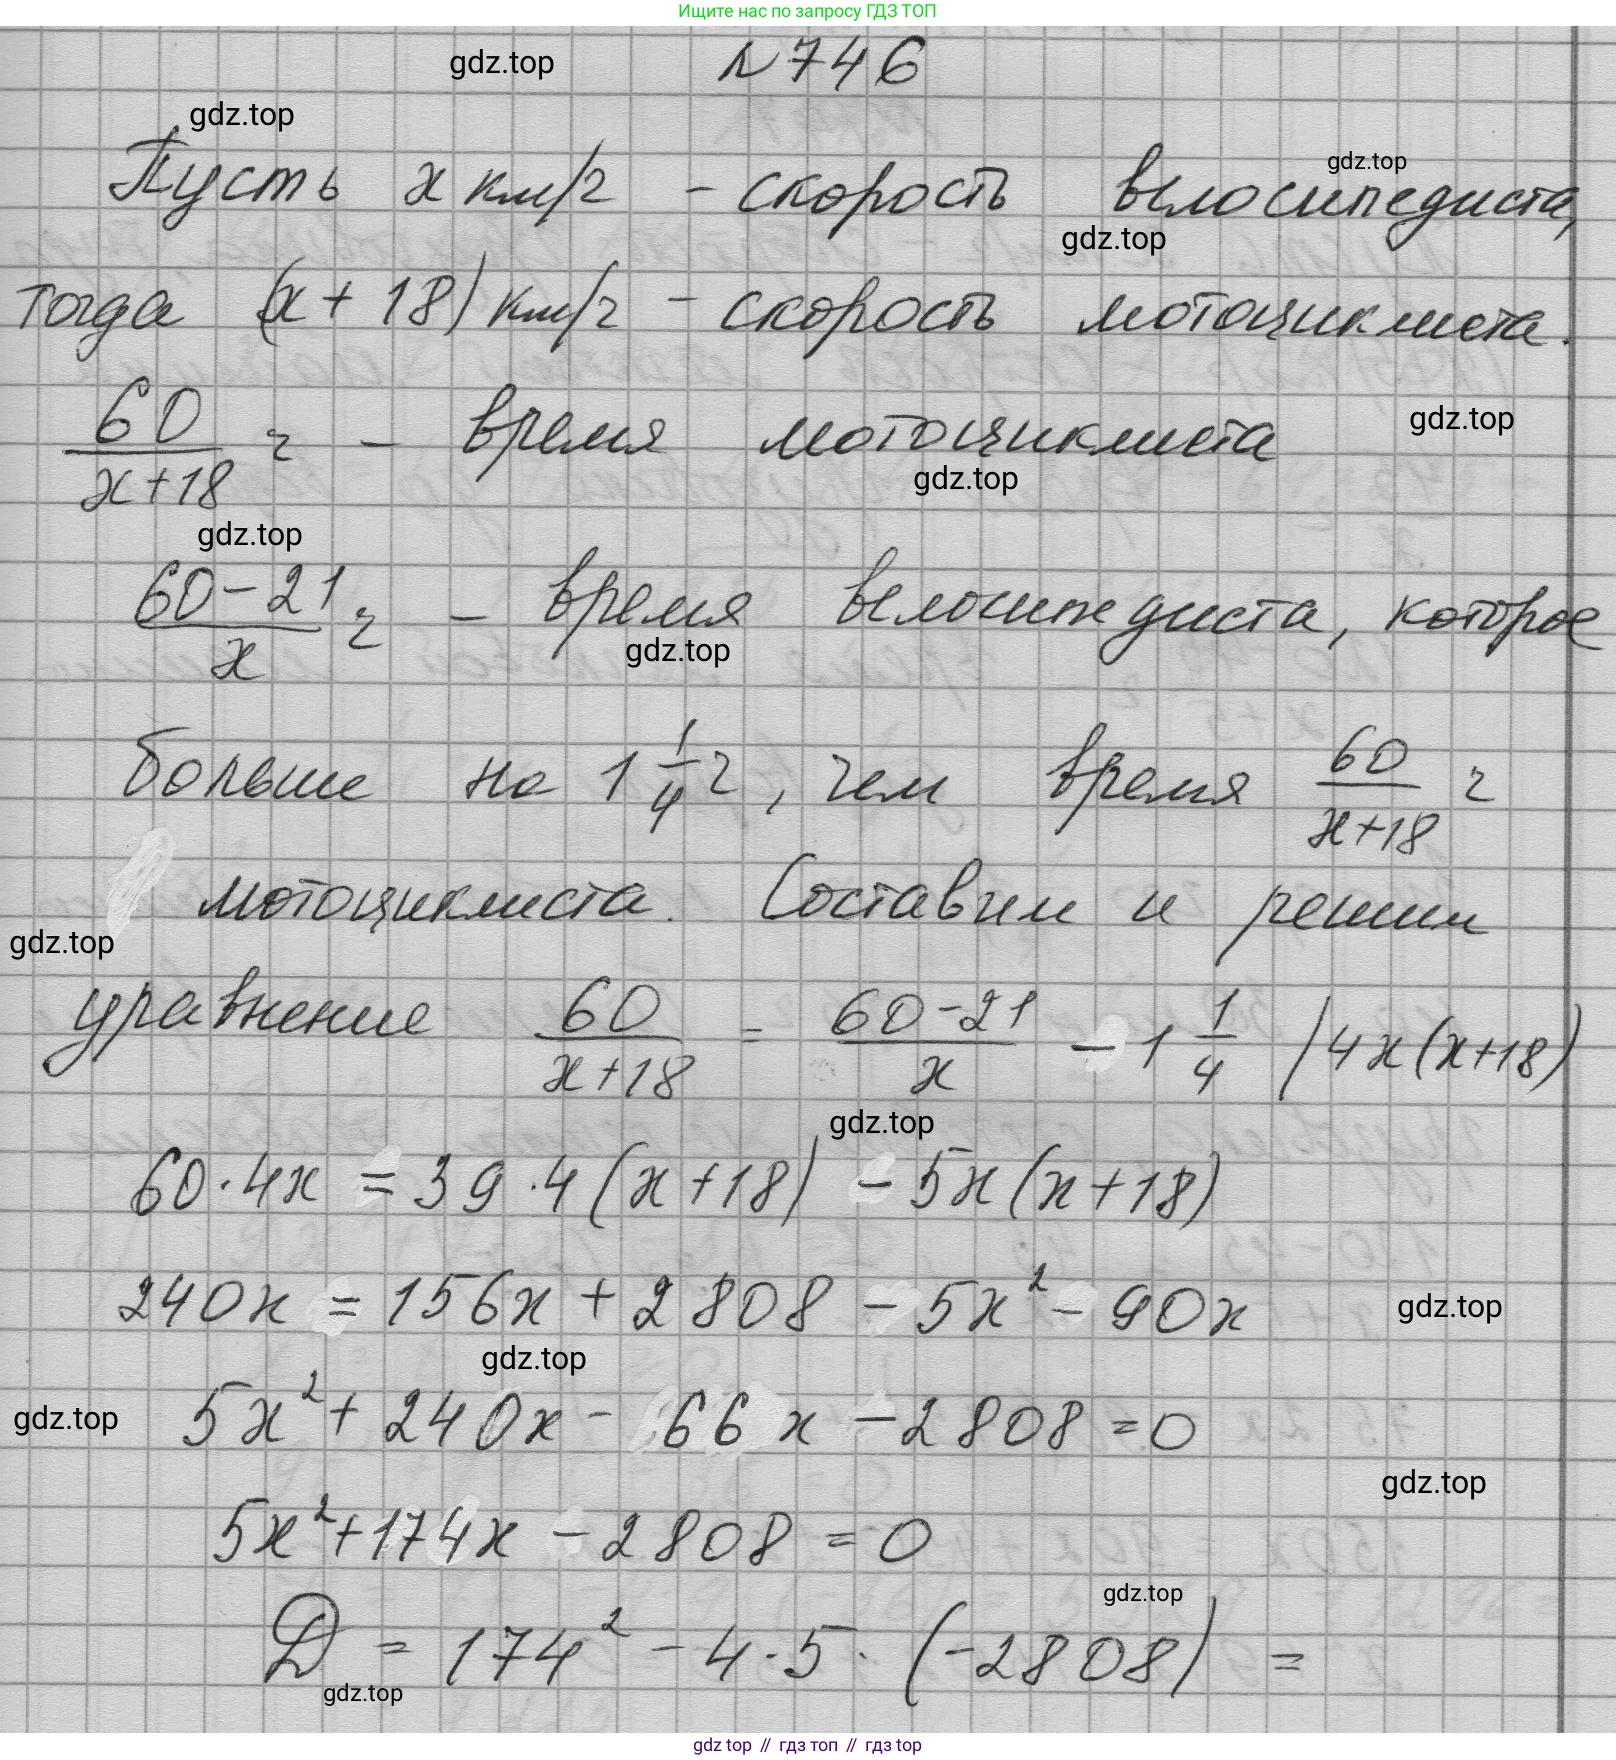 Ищите нас по запросу ГДЗ ТОП
№746
gdz.top
gdz.top
Пусть x км/ч - скорость велосипедиста,
gdz.top
gdz.top
тогда (x + 18) км/ч - скорость мотоциклиста.
60/(x+18) ч - время мотоциклиста
gdz.top
gdz.top
gdz.top
(60-21)/x ч - время велосипедиста, которое
gdz.top
больше на 1 1/4 ч, чем время 60/(x+18) ч
мотоциклиста. Составим и решим
gdz.top
уравнение 60/(x+18) = (60-21)/x - 1 1/4 / 4x(x+18)
gdz.top
60·4x = 39·4(x+18) - 5x(x+18)
240x = 156x + 2808 - 5x² - 90x
gdz.top
gdz.top
5x² + 240x - 66x - 2808 = 0
gdz.top
gdz.top
5x² + 174x - 2808 = 0
gdz.top
D = 174² - 4·5·(-2808) =
gdz.top
gdz top // гдз топ // гдз top